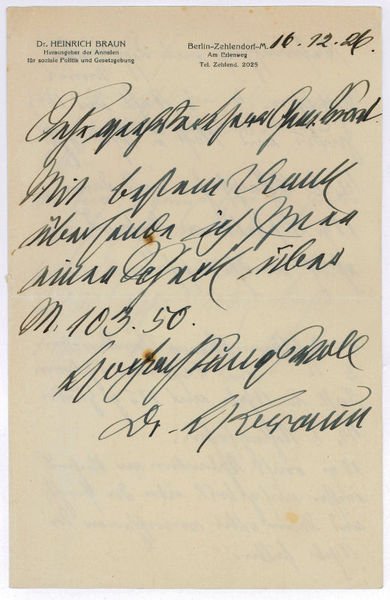 Dr. HEINRICH BRAUN
Herausgeber der Annalen
für soziale Politik und Gesetzgebung
Berlin-Zehlendorf-M. 16.12.26.
Am Erlenweg
Tel. Zehlend. 2025
Sehr geehrter Herr
Mit bestem Dank
übersende ich Ihnen
einen Scheck über
M. 103.50.
Hochachtungsvoll
Dr. HBraun